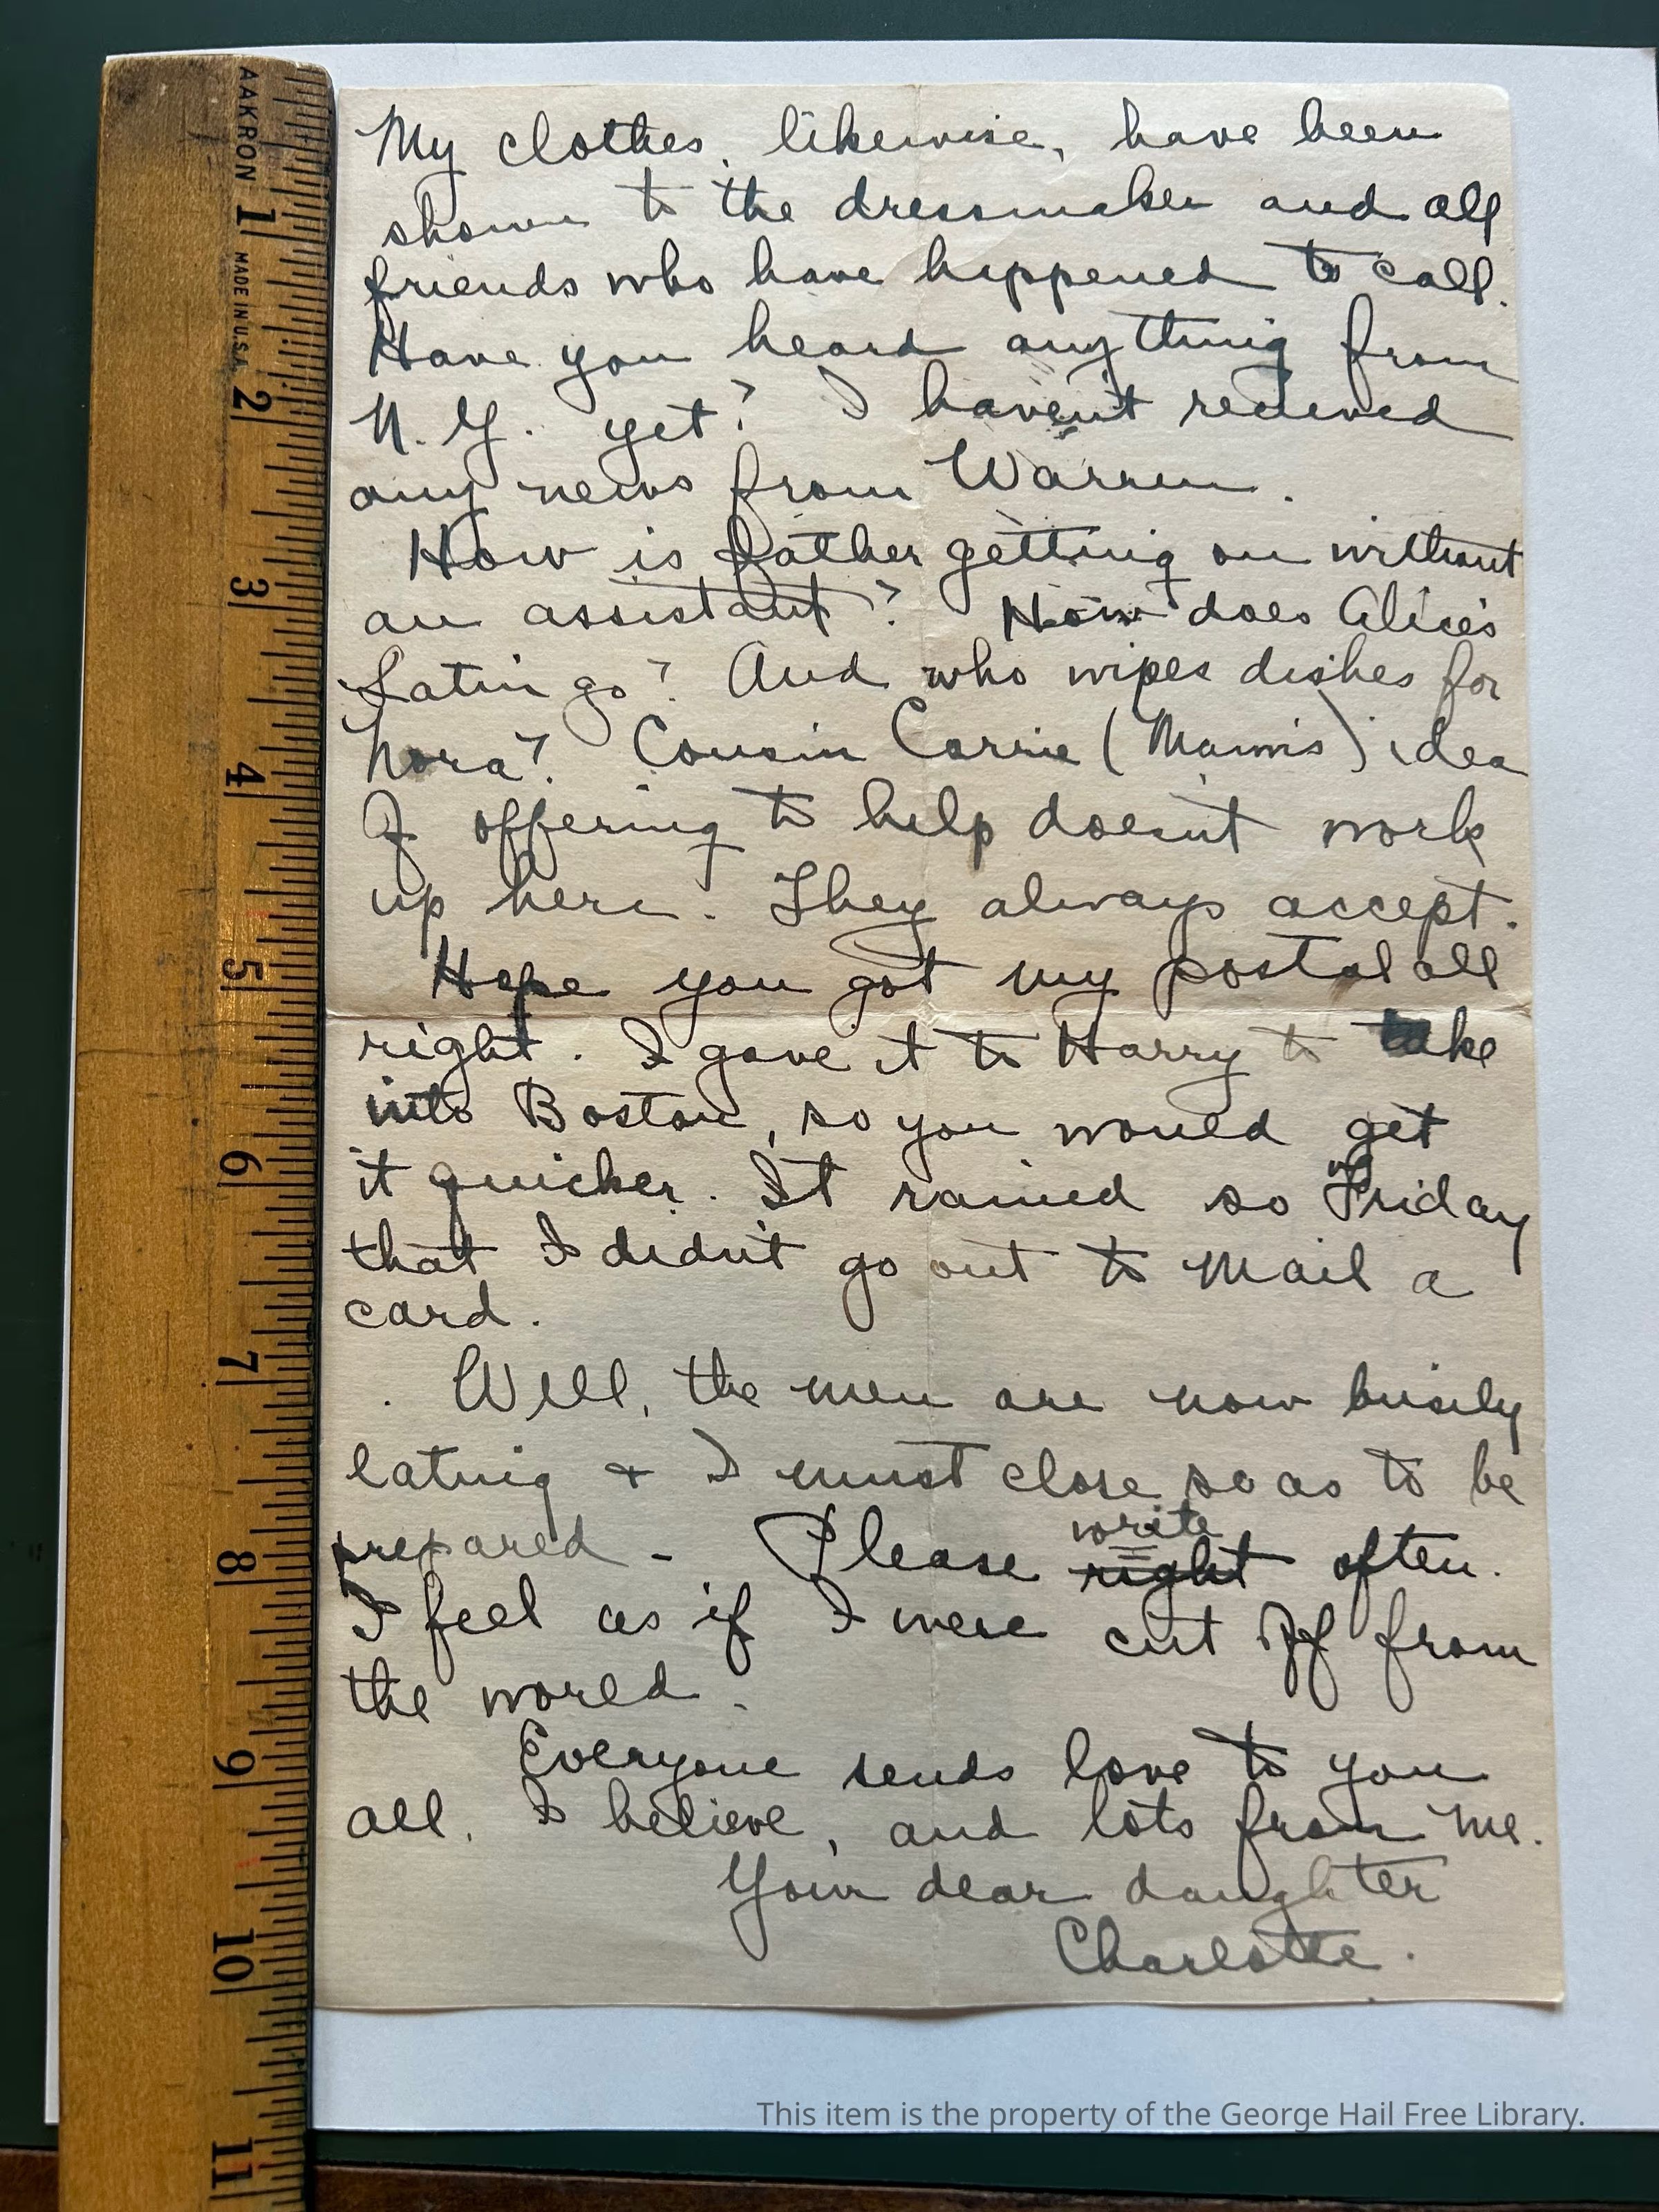 AAKRON MADE IN U.S.A.
1
2
3
4
5
6
7
8
9
10
11
My clothes, likewise, have been
shown to the dressmaker and all
friends who have happened to call.
Have you heard anything from
N.Y. yet? I haven't recieved
any news from Warren.
How is father getting on without
an assistant? How does Alice's
Latin go? And who wipes dishes for
Nora? Cousin Carrie (Mam's) idea
of offering to help doesn't work
up here. They always accept.
Hope you got my postal all
right. I gave it to Harry to take
into Boston, so you would get
it quicker. It rained so Friday
that I didn't go out to mail a
card.
Well, the men are now busily
eating + I must close so as to be
prepared - Please right often.
write
I feel as if I were cut off from
the world.
Everyone sends love to you
all, I believe, and lots from me.
Your dear daughter
Charlotte.
This item is the property of the George Hail Free Library.